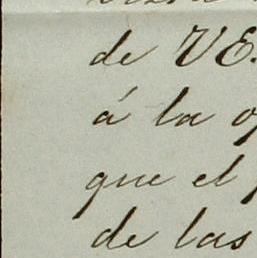 de VE.
á la
que el
de las